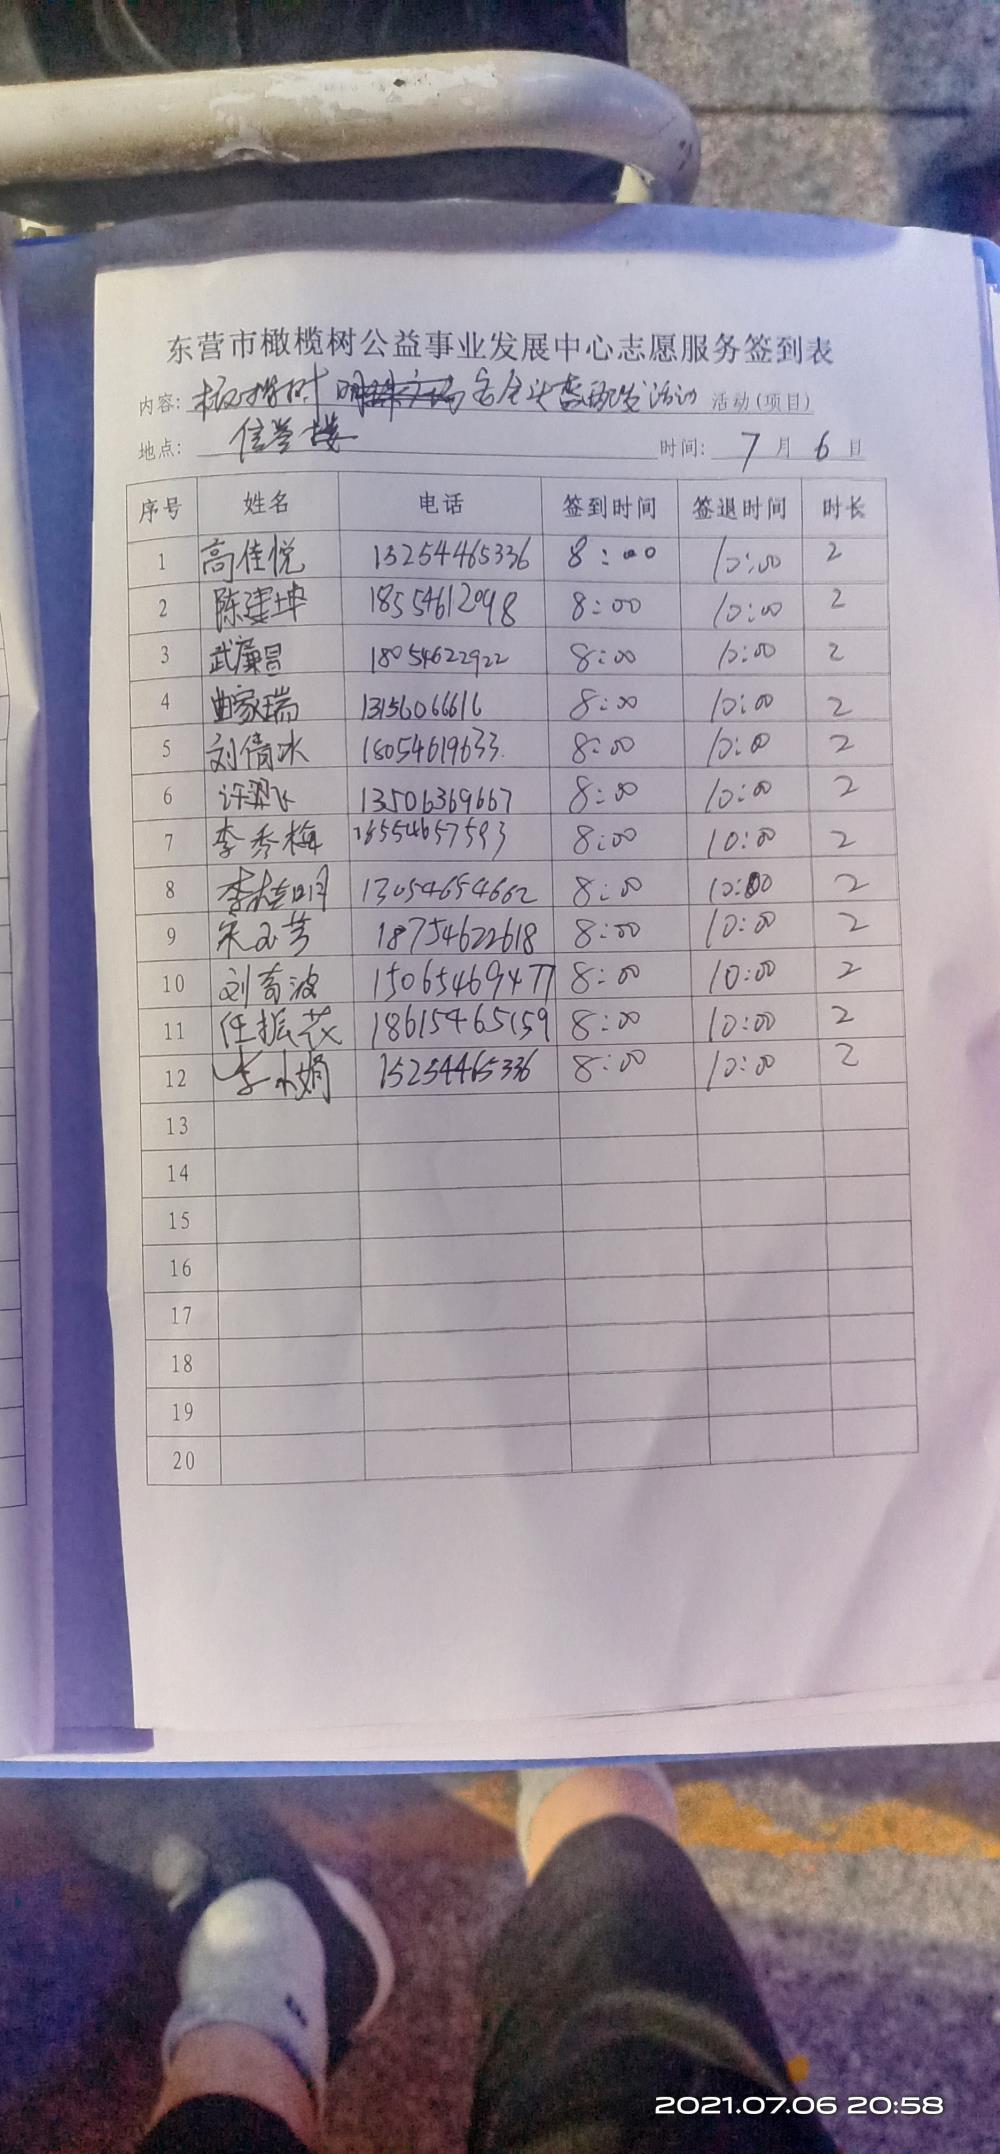 东营市橄榄树公益事业发展中心志愿服务签到表
内容: 活动 活动(项目)
地点: 信誉楼 时间: 7 月 6 日
序号 姓名 电话 签到时间 签退时间 时长
1 高佳悦 13254465336 8:00 10:00 2
2 陈建坤 18554612098 8:00 10:00 2
3 武廉昌 18054622922 8:00 10:00 2
4 曲家瑞 13156066616 8:00 10:00 2
5 刘倩冰 18054619633 8:00 10:00 2
6 许翠飞 13506369667 8:00 10:00 2
7 李秀梅 18554657593 8:00 10:00 2
8 李桂明 13054654662 8:00 10:00 2
9 宋玉芳 18754622618 8:00 10:00 2
10 刘奇波 15065469477 8:00 10:00 2
11 任振花 18615465159 8:00 10:00 2
12 李小娟 15254465336 8:00 10:00 2
13
14
15
16
17
18
19
20
2021.07.06 20:58